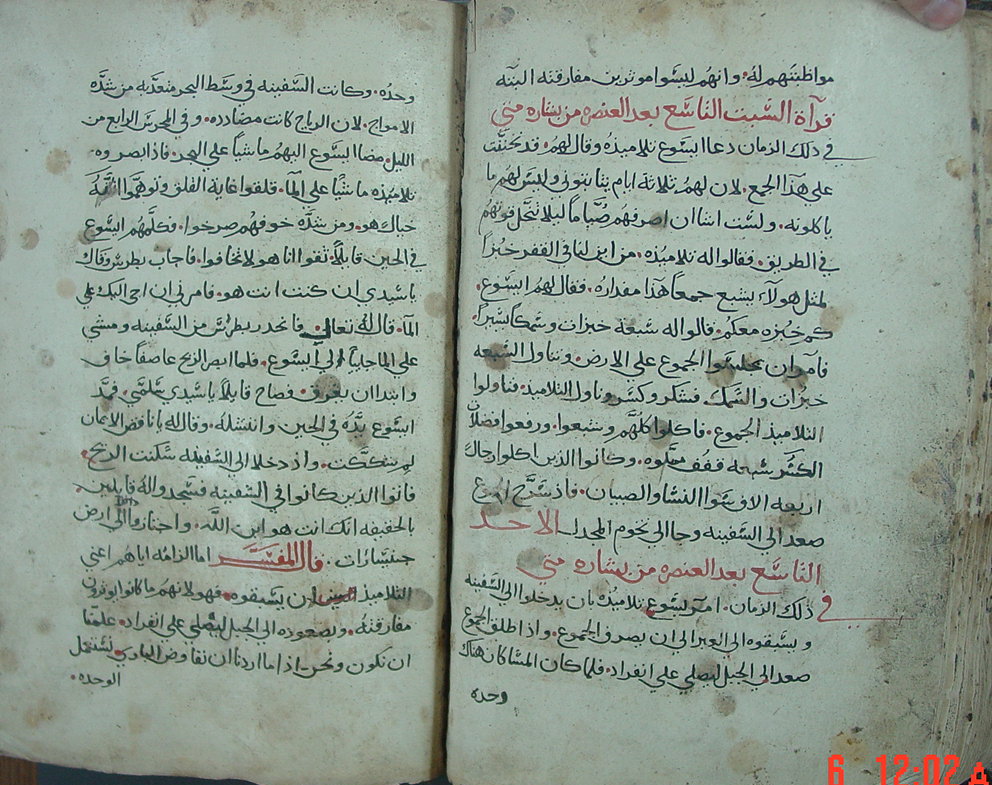 مواظبتهم له. وانهم ليسوا موثرين مفارقته البته
قرآة السبت التاسع بعد العنصره من بشاره متي
في ذلك الزمان دعا ايسوع تلاميذه وقال لهم. قد تحننت
علي هذا الجمع. لان لهم ثلاثة ايام يثابتوني وليس لهم ما
ياكلونه. ولست اشا ان اصرفهم صياما ليلا تنحل قوتهم
في الطريق. فقالوا له تلاميذه. من اين لنا في القفر خبزا
لمثل هولاء يشبع جمعا هذا مقداره. فقال لهم ايسوع.
كم خبزه معكم. قالوا له سبعة خبزات وسمكا يسيرا.
فامر ان يجلسوا الجموع علي الارض. وتناول السبعه
خبزات والسمك فشكر وكسر وناول التلاميذ. فناولوا
التلاميذ الجموع. فاكلوا كلهم وشبعوا. ورفعوا افضلات
الكسر سبعه قفف مملوه. وكانوا الذين اكلوا رجالا
اربعه الاف سوا النسا والصبيان. فاذ سرح الجموع
صعد الي السفينه وجا الي تخوم المجدل الاحد
التاسع بعد العنصره من بشاره متي
في ذلك الزمان. امر ايسوع تلاميذه بان يدخلوا الي السفينه
ويسبقوه الي العبر الي ان يصرف الجموع. واذ اطلق الجموع
صعد الي الجبل ليصلي علي انفراد. فلما كان المسا كان هناك
وحده
وحده. وكانت السفينه في وسط البحر متعذبه من شده
الامواج. لان الرياح كانت مضادده. وفي المحرس الرابع من
الليل. مضا ايسوع اليهم ماشيا علي البحر. فاذ ابصروه
تلاميذه ماشيا علي الما. قلقوا غاية القلق وتوهموا انه
خيال هو. ومن شده خوفهم صرخوا. وكلمهم ايسوع
في الحين قايلا. ثقوا انا هو لا تخافوا. فاجاب بطرس وقال
ياسيدي ان كنت انت هو. فامرني ان اجي اليك علي
الما. قال له تعالي. فانحدر بطرس من السفينه ومشي
علي الما جايا الي ايسوع. فلما ابصر الريح عاصفا خاف
وابتدا ان يغرق. فصاح قايلا ياسيدي سلمني. فمد
ايسوع يده في الحين وانتشله. وقال له ياناقص الايمان
لم تشككت. واذ دخلا الي السفينه سكنت الريح.
فاتوا الذين كانوا في السفينه فسجدوا له قايلين
بالحقيقه انك انت هو ابن الله. واجتازوا الي ارض
جنيسارات. قال المفسر اما الزامه اياهم اعني
التلاميذ ان يسبقوه. فهو لانهم ما كانوا يوثرون
مفارقته. وبصعوده الي الجبل ليصلي علي انفراد. علمنا
ان نكون ونحن اذا ما اردنا ان نفاوض الباري نستعمل
الوحده.